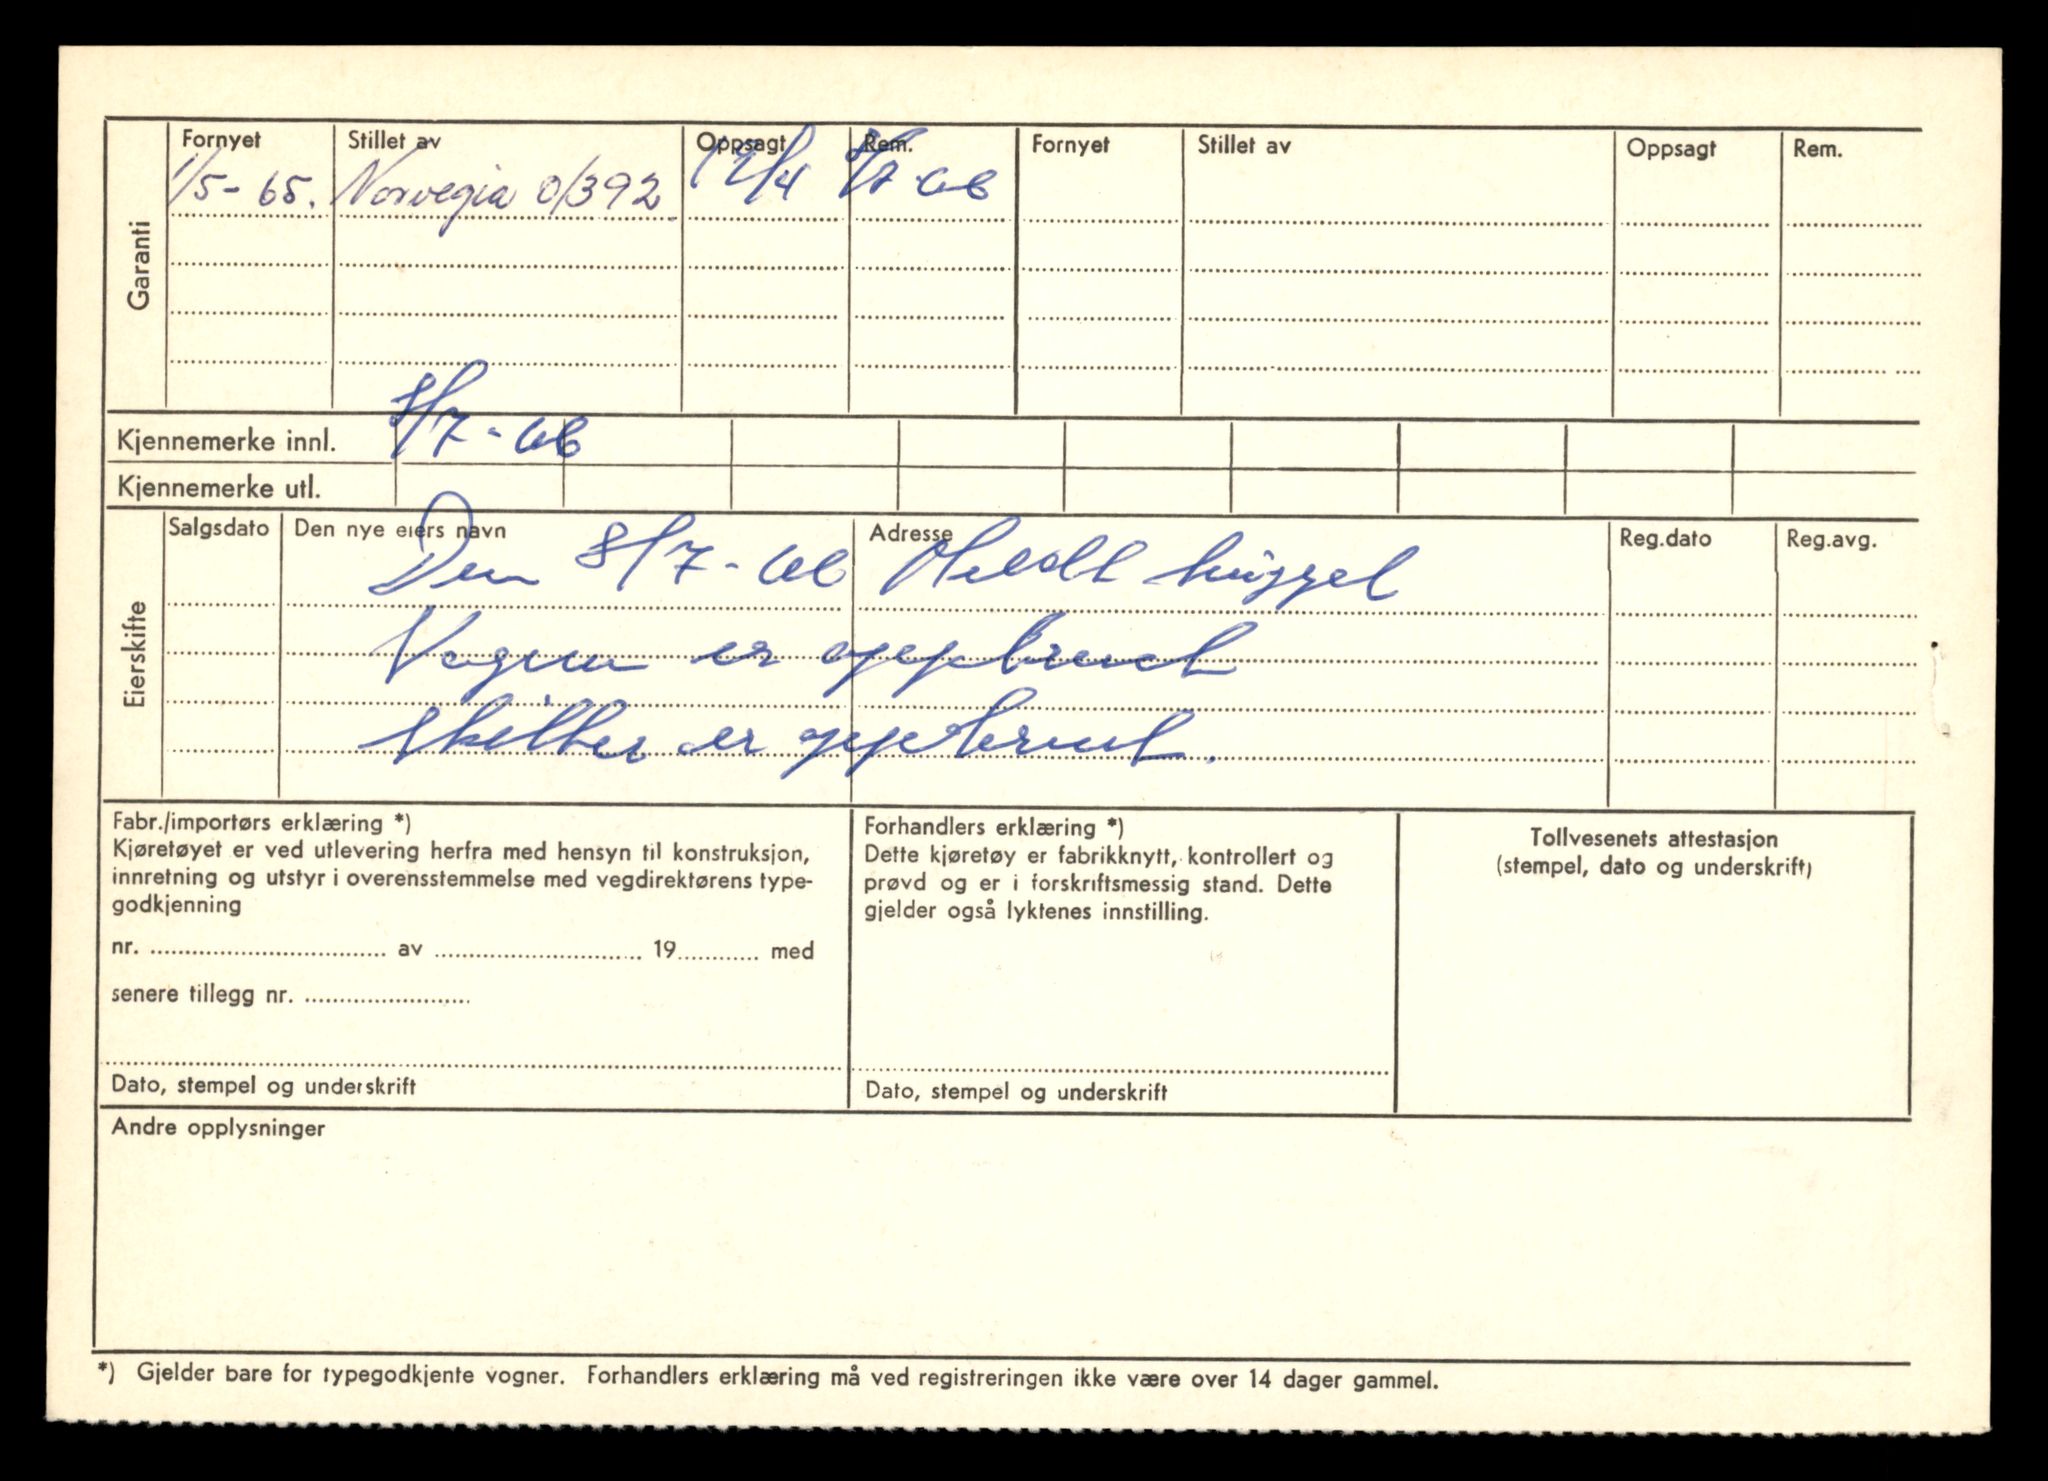 Garanti
Fornyet Stillet av Oppsagt Rem. Fornyet Stillet av Oppsagt Rem.
1/5-65. Norvegia 0/392. 12/4 8/7-66
Kjennemerke innl. 8/7-66
Kjennemerke utl.
Eierskifte
Salgsdato Den nye eiers navn Adresse Reg.dato Reg.avg.
Den 8/7-66 Meldt
Vognen er oppbrendt
skilter er oppbrent.
Fabr./importørs erklæring *)
Kjøretøyet er ved utlevering herfra med hensyn til konstruksjon,
innretning og utstyr i overensstemmelse med vegdirektørens type-
godkjenning
nr. .......... av .......... 19.......... med
senere tillegg nr. ..........
Dato, stempel og underskrift
Forhandlers erklæring *)
Dette kjøretøy er fabrikknytt, kontrollert og
prøvd og er i forskriftsmessig stand. Dette
gjelder også lyktenes innstilling.
Dato, stempel og underskrift
Tollvesenets attestasjon
(stempel, dato og underskrift)
Andre opplysninger
*) Gjelder bare for typegodkjente vogner. Forhandlers erklæring må ved registreringen ikke være over 14 dager gammel.